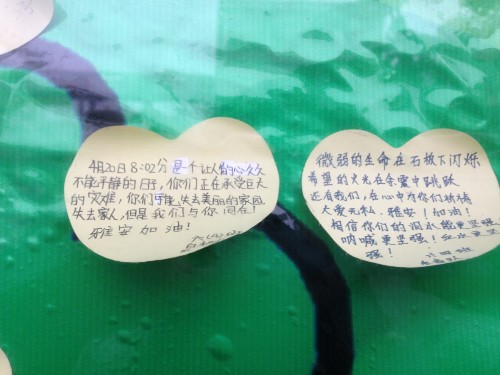 4月20日8:02分是个让人的心久久
不能平静的日子,你们正在承受巨大
的灾难,你们可能失去美丽的家园,
失去家人,但是我们与你同在!
雅安加油!
微弱的生命在石板下闪烁
希望的火光在余震中跳跃
还有我们,在心中为你们祈祷
大爱无私.雅安!加油!
相信你们的泪水能更坚强
呐喊更坚强!
强!